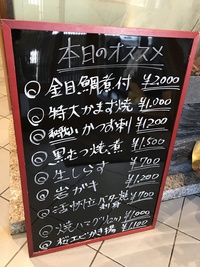 本日のオススメ
金目鯛煮付 ¥2,000
特大かます焼 ¥1,000
和歌山 かつお刺 ¥1,200
黒むつ焼煮 ¥1,500
生しらす ¥700
岩がき ¥1,200
活帆立 バター焼 刺身 ¥700
焼ハマグリ(2ヶ) ¥1,000
桜エビかき揚 ¥1,100